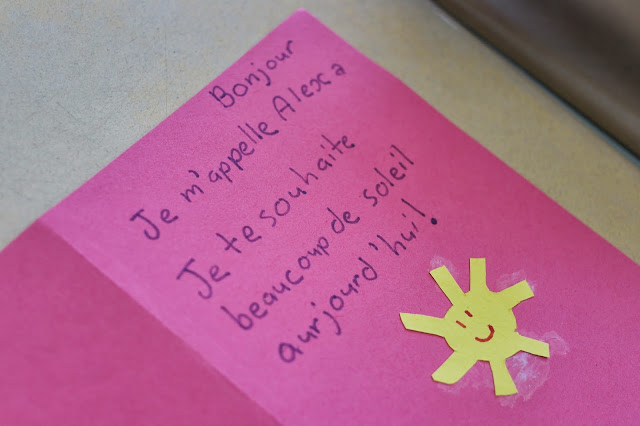 Bonjour
Je m'appelle Alexa
Je te souhaite
beaucoup de soleil
aurjourd'hui!